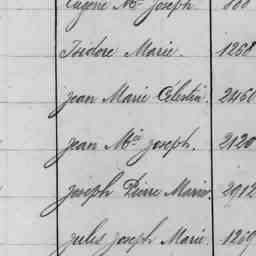 Eugène Mie Joseph.
Isidore Marie. 1268
Jean Marie Célestin. 2460
Jean Mie Joseph. 2120
Joseph Pierre Marie. 2912
Jules Joseph Marie. 1269